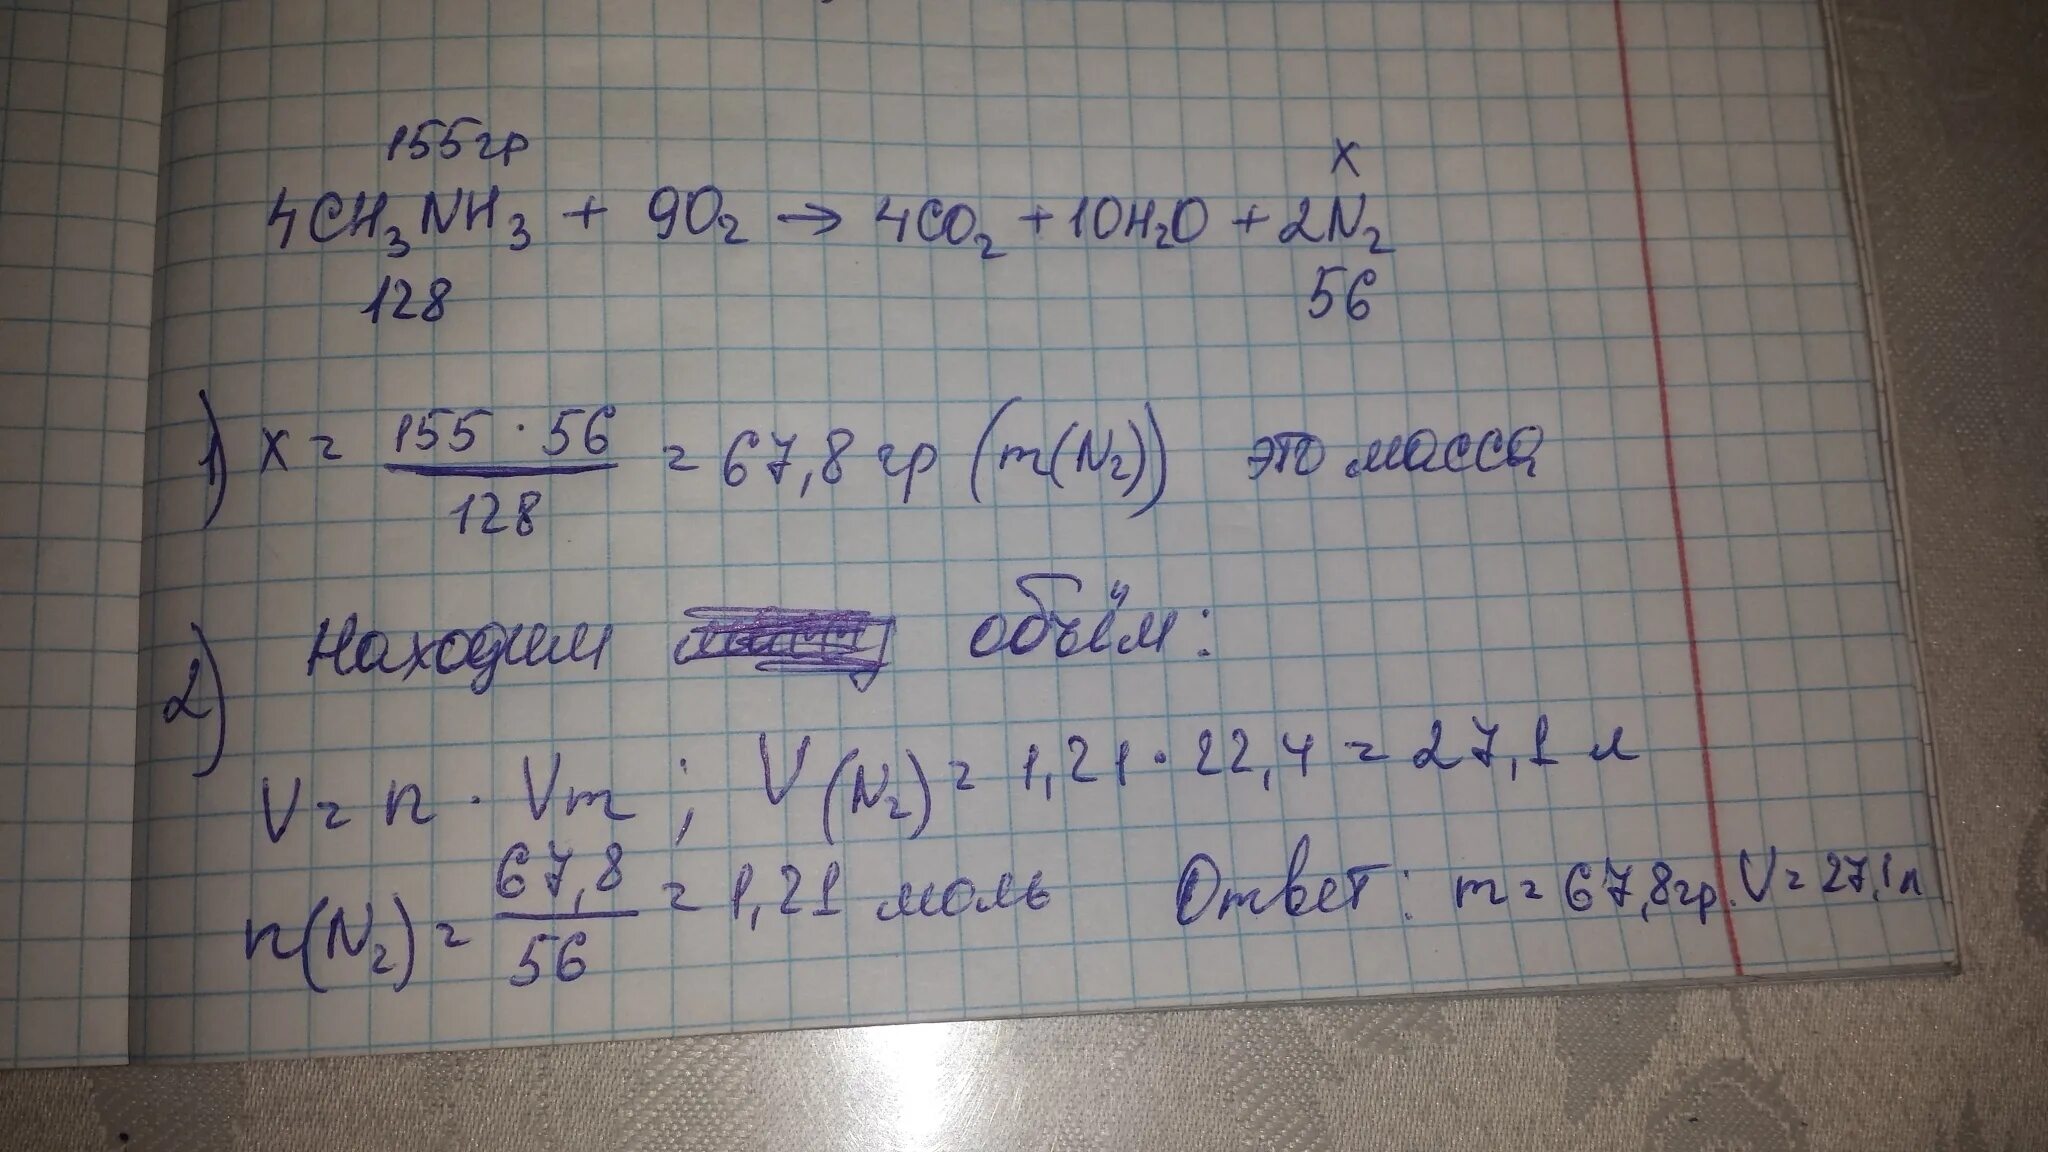 155гр x
4CH₃NH₃ + 9O₂ → 4CO₂ + 10H₂O + 2N₂
128 56
1) x = 155 · 56 / 128 = 67,8 гр (m(N₂)) это масса
2) Находим объём:
V = n · Vm ; V(N₂) = 1,21 · 22,4 = 27,1 л
n(N₂) = 67,8 / 56 = 1,21 моль Ответ: m = 67,8гр. V = 27,1л